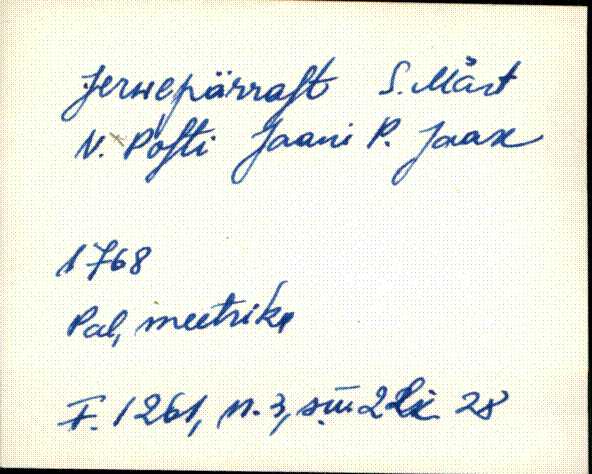 Jerwepärraſt S. Märt
N. Poſti Jaani P. Jaak
1768
Pal, meetrika
F. 1261, n. 3, sü. 2 28